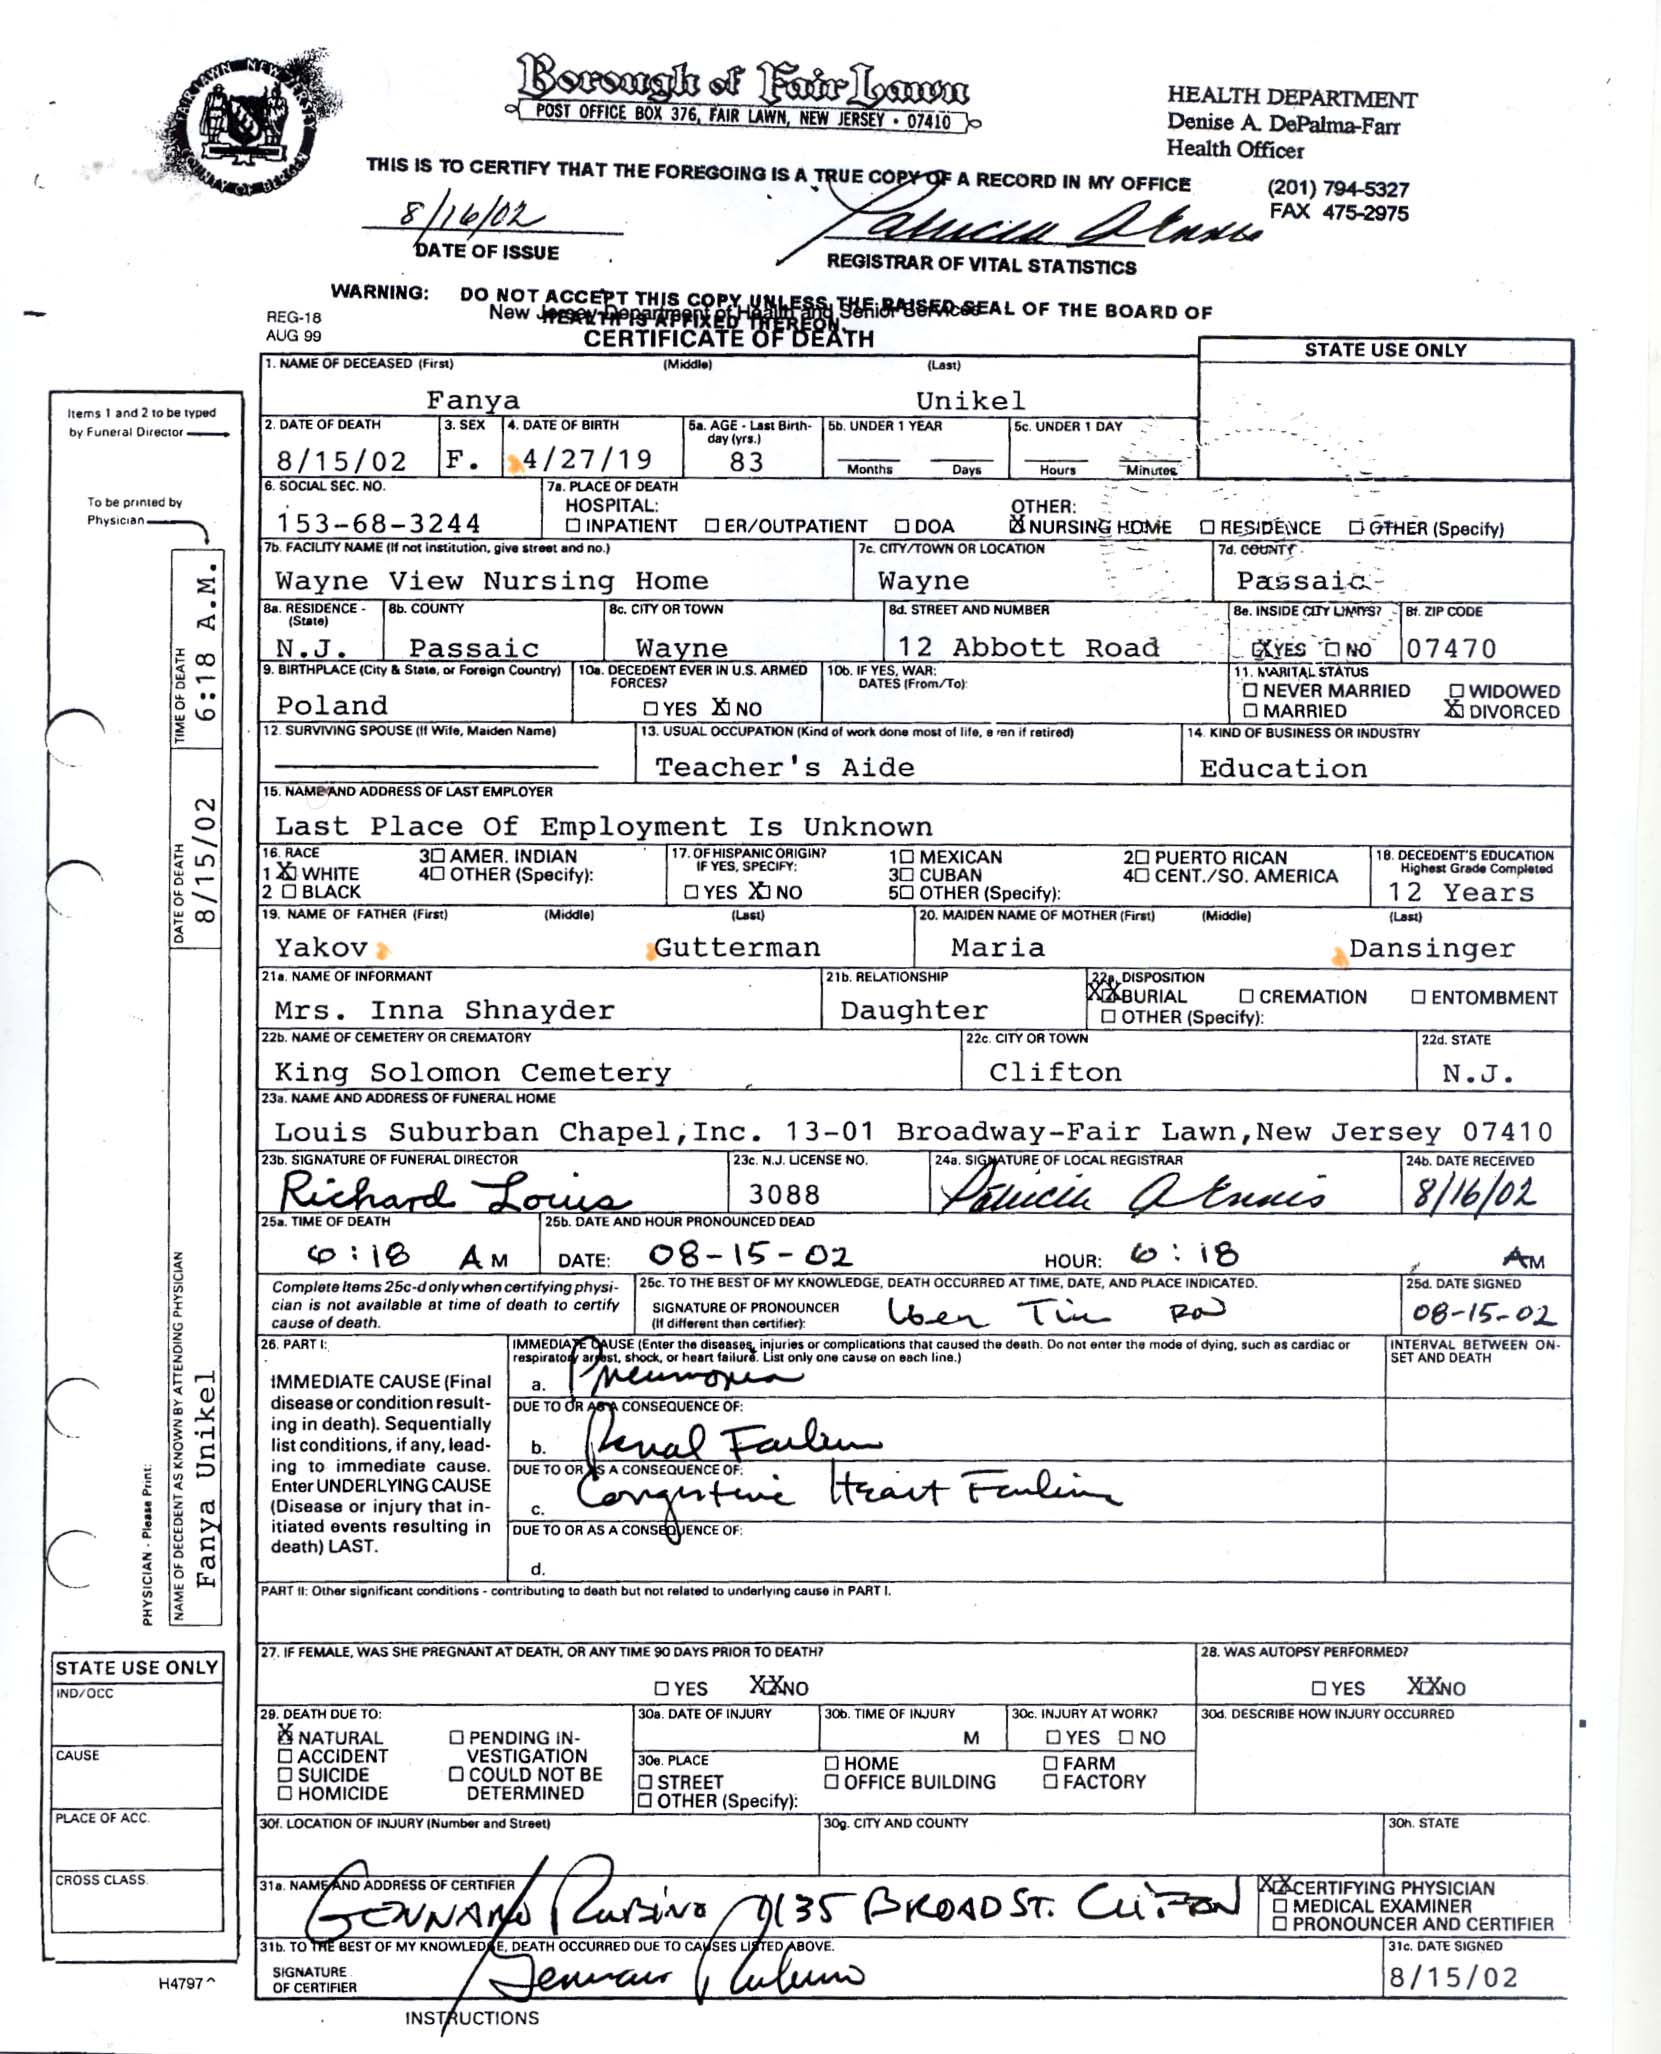 FAIR LAWN NEW JERSEY
COUNTY OF BERGEN
Borough of Fair Lawn
POST OFFICE BOX 376, FAIR LAWN, NEW JERSEY • 07410
HEALTH DEPARTMENT
Denise A. DePalma-Farr
Health Officer
(201) 794-5327
FAX 475-2975
THIS IS TO CERTIFY THAT THE FOREGOING IS A TRUE COPY OF A RECORD IN MY OFFICE
8/16/02
DATE OF ISSUE
REGISTRAR OF VITAL STATISTICS
WARNING: DO NOT ACCEPT THIS COPY UNLESS THE RAISED SEAL OF THE BOARD OF
HEALTH IS AFFIXED THEREON.
New Jersey Department of Health and Senior Services
REG-18
AUG 99
CERTIFICATE OF DEATH
STATE USE ONLY
1. NAME OF DECEASED (First) (Middle) (Last)
Fanya Unikel
2. DATE OF DEATH 3. SEX 4. DATE OF BIRTH 5a. AGE - Last Birth-
day (yrs.) 5b. UNDER 1 YEAR 5c. UNDER 1 DAY
8/15/02 F. 4/27/19 83 Months Days Hours Minutes
6. SOCIAL SEC. NO. 7a. PLACE OF DEATH
153-68-3244
HOSPITAL: OTHER:
☐ INPATIENT ☐ ER/OUTPATIENT ☐ DOA ☒ NURSING HOME ☐ RESIDENCE ☐ OTHER (Specify)
7b. FACILITY NAME (If not institution, give street and no.) 7c. CITY/TOWN OR LOCATION 7d. COUNTY
Wayne View Nursing Home Wayne Passaic
8a. RESIDENCE -
(State) 8b. COUNTY 8c. CITY OR TOWN 8d. STREET AND NUMBER 8e. INSIDE CITY LIMITS? 8f. ZIP CODE
N.J. Passaic Wayne 12 Abbott Road ☒ YES ☐ NO 07470
9. BIRTHPLACE (City & State, or Foreign Country) 10a. DECEDENT EVER IN U.S. ARMED
FORCES? 10b. IF YES, WAR:
DATES (From/To): 11. MARITAL STATUS
Poland ☐ YES ☒ NO
☐ NEVER MARRIED ☐ WIDOWED
☐ MARRIED ☒ DIVORCED
12. SURVIVING SPOUSE (If Wife, Maiden Name) 13. USUAL OCCUPATION (Kind of work done most of life, even if retired) 14. KIND OF BUSINESS OR INDUSTRY
Teacher's Aide Education
15. NAME AND ADDRESS OF LAST EMPLOYER
Last Place Of Employment Is Unknown
16. RACE 3☐ AMER. INDIAN
1 ☒ WHITE 4☐ OTHER (Specify):
2 ☐ BLACK
17. OF HISPANIC ORIGIN?
IF YES, SPECIFY:
☐ YES ☒ NO
1☐ MEXICAN 2☐ PUERTO RICAN
3☐ CUBAN 4☐ CENT./SO. AMERICA
5☐ OTHER (Specify):
18. DECEDENT'S EDUCATION
Highest Grade Completed
12 Years
19. NAME OF FATHER (First) (Middle) (Last) 20. MAIDEN NAME OF MOTHER (First) (Middle) (Last)
Yakov Gutterman Maria Dansinger
21a. NAME OF INFORMANT 21b. RELATIONSHIP 22a. DISPOSITION
Mrs. Inna Shnayder Daughter
☒ BURIAL ☐ CREMATION ☐ ENTOMBMENT
☐ OTHER (Specify):
22b. NAME OF CEMETERY OR CREMATORY 22c. CITY OR TOWN 22d. STATE
King Solomon Cemetery Clifton N.J.
23a. NAME AND ADDRESS OF FUNERAL HOME
Louis Suburban Chapel,Inc. 13-01 Broadway-Fair Lawn,New Jersey 07410
23b. SIGNATURE OF FUNERAL DIRECTOR 23c. N.J. LICENSE NO. 24a. SIGNATURE OF LOCAL REGISTRAR 24b. DATE RECEIVED
Richard Louis 3088 8/16/02
25a. TIME OF DEATH 25b. DATE AND HOUR PRONOUNCED DEAD
6:18 AM DATE: 08-15-02 HOUR: 6:18 AM
Complete Items 25c-d only when certifying physi-
cian is not available at time of death to certify
cause of death.
25c. TO THE BEST OF MY KNOWLEDGE, DEATH OCCURRED AT TIME, DATE, AND PLACE INDICATED. 25d. DATE SIGNED
SIGNATURE OF PRONOUNCER
(If different than certifier):
08-15-02
26. PART I:
IMMEDIATE CAUSE (Final
disease or condition result-
ing in death). Sequentially
list conditions, if any, lead-
ing to immediate cause.
Enter UNDERLYING CAUSE
(Disease or injury that in-
itiated events resulting in
death) LAST.
IMMEDIATE CAUSE (Enter the diseases, injuries or complications that caused the death. Do not enter the mode of dying, such as cardiac or
respiratory arrest, shock, or heart failure. List only one cause on each line.)
INTERVAL BETWEEN ON-
SET AND DEATH
a. Pneumonia
DUE TO OR AS A CONSEQUENCE OF:
b. Renal Failure
DUE TO OR AS A CONSEQUENCE OF:
c. Congestive Heart Failure
DUE TO OR AS A CONSEQUENCE OF:
d.
PART II: Other significant conditions - contributing to death but not related to underlying cause in PART I.
27. IF FEMALE, WAS SHE PREGNANT AT DEATH, OR ANY TIME 90 DAYS PRIOR TO DEATH? 28. WAS AUTOPSY PERFORMED?
☐ YES XXNO ☐ YES XXNO
29. DEATH DUE TO:
☒ NATURAL ☐ PENDING IN-
☐ ACCIDENT VESTIGATION
☐ SUICIDE ☐ COULD NOT BE
☐ HOMICIDE DETERMINED
30a. DATE OF INJURY 30b. TIME OF INJURY 30c. INJURY AT WORK? 30d. DESCRIBE HOW INJURY OCCURRED
M ☐ YES ☐ NO
30e. PLACE ☐ HOME ☐ FARM
☐ STREET ☐ OFFICE BUILDING ☐ FACTORY
☐ OTHER (Specify):
30f. LOCATION OF INJURY (Number and Street) 30g. CITY AND COUNTY 30h. STATE
31a. NAME AND ADDRESS OF CERTIFIER
GENNARO RUBINO 1135 BROAD ST. CLIFTON
XXCERTIFYING PHYSICIAN
☐ MEDICAL EXAMINER
☐ PRONOUNCER AND CERTIFIER
31b. TO THE BEST OF MY KNOWLEDGE, DEATH OCCURRED DUE TO CAUSES LISTED ABOVE. 31c. DATE SIGNED
SIGNATURE
OF CERTIFIER
Gennaro Rubino
8/15/02
INSTRUCTIONS
Items 1 and 2 to be typed
by Funeral Director
To be printed by
Physician
PHYSICIAN - Please Print:
NAME OF DECEDENT AS KNOWN BY ATTENDING PHYSICIAN DATE OF DEATH TIME OF DEATH
Fanya Unikel 8/15/02 6:18 A.M.
STATE USE ONLY
IND/OCC
CAUSE
PLACE OF ACC.
CROSS CLASS.
H4797^